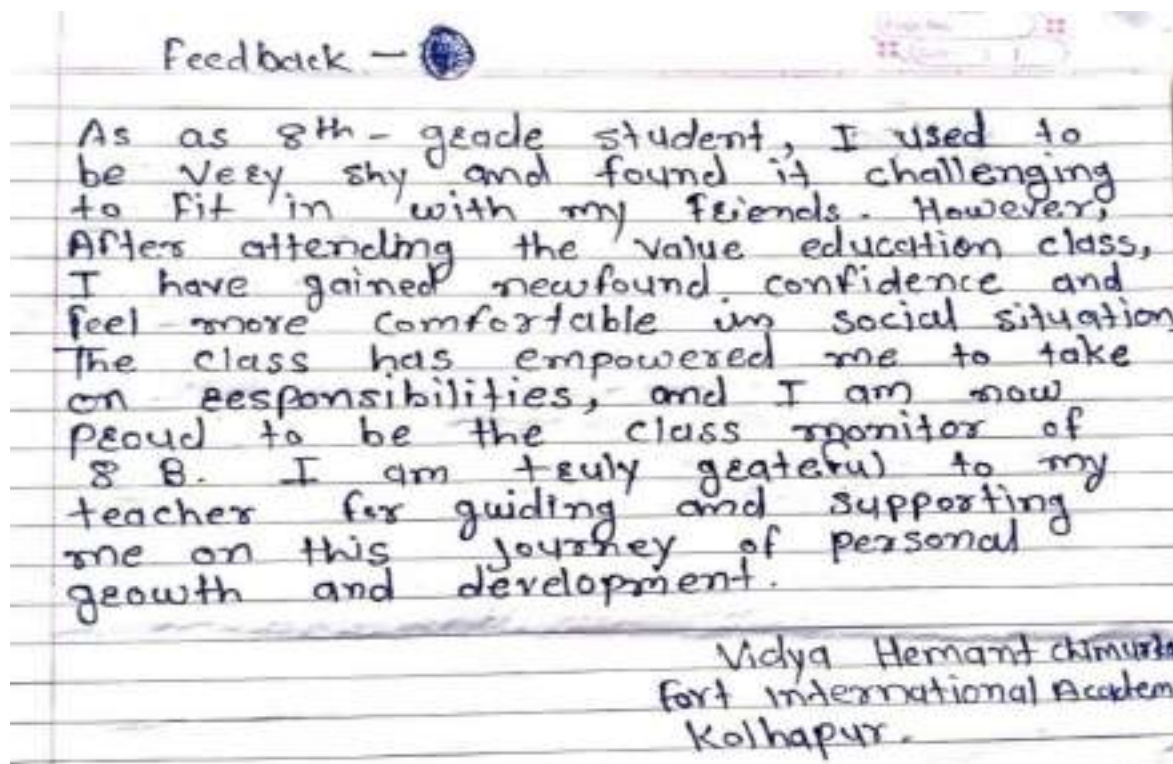 Feedback -
As as 8th - grade student, I used to
be very shy and found it challenging
to fit in with my friends. However,
After attending the value education class,
I have gained newfound confidence and
feel more comfortable in social situation
The class has empowered me to take
on responsibilities, and I am now
proud to be the class monitor of
8 B. I am truly grateful to my
teacher for guiding and supporting
me on this journey of personal
growth and development.
Vidya Hemant
Fort International Academ
Kolhapur.